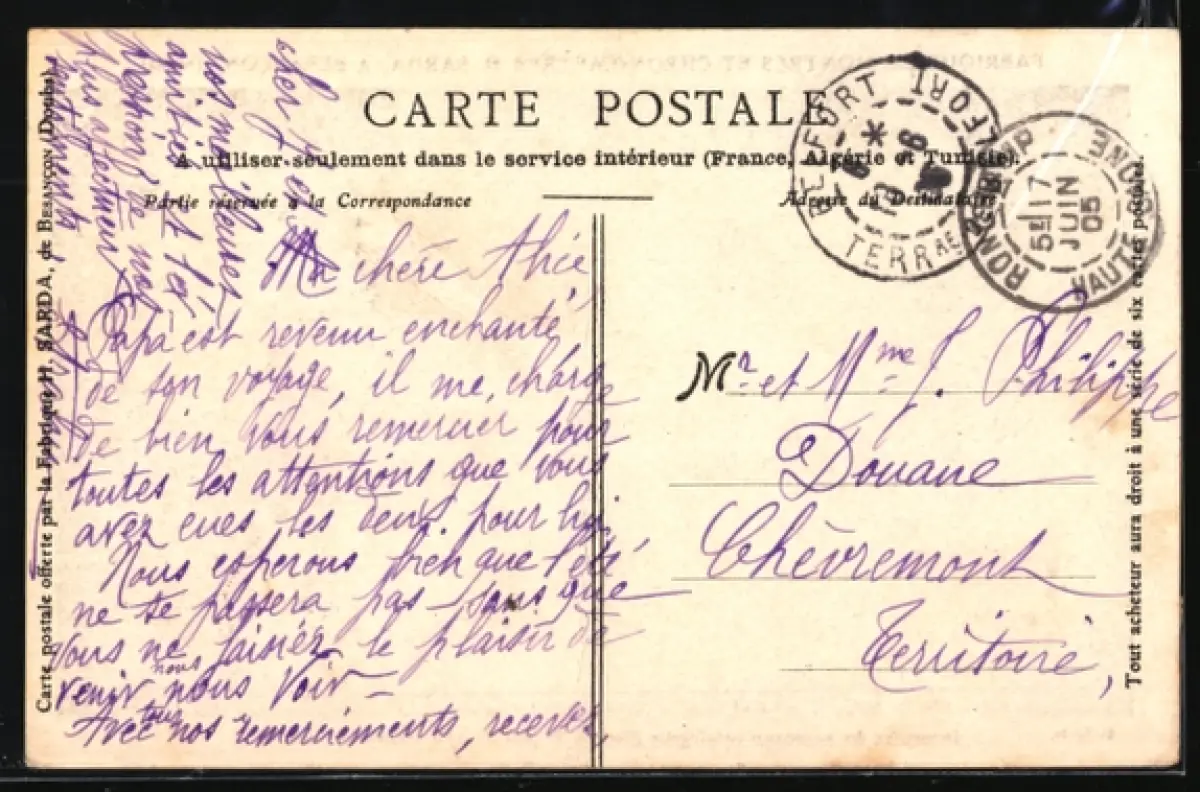 CARTE POSTALE
A utiliser seulement dans le service intérieur (France, Algérie et Tunisie).
Partie réservée à la Correspondance
Adresse du Destinataire
Ma chère Alice,
Papa est revenu enchanté
de son voyage, il me charge
de bien vous remercier pour
toutes les attentions que vous
avez eues les deux pour lui.
Nous esperons bien que l'été
ne se passera pas sans que
vous ne nous faisiez le plaisir de
venir nous voir —
Avec tous nos remerciements, recevez,
cher
nos meilleures
amitiés et
de ma
plus affectueux
sentiments
Mr. et Mme J. Philippe
Douane
Chèvremont
Territoire,
BELFORT BELFORT
TERRRE
RONCHAMP
HAUTE SAONE
5E 17
JUIN
05
Carte postale offerte par la Fabrique H. SARDA, de BESANÇON (Doubs).
Tout acheteur aura droit à une série de six cartes postales.